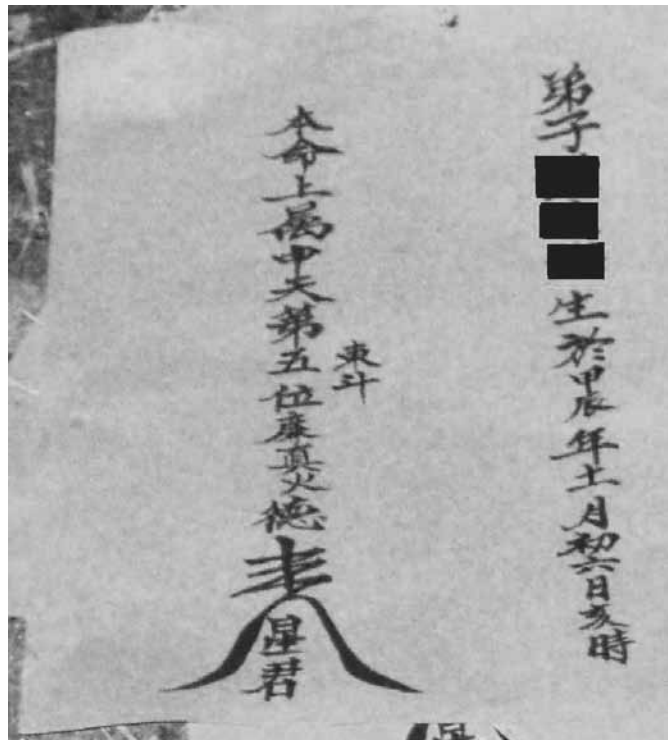 弟子 生於甲辰年十一月初六日亥時
東斗
本命上屬中天第五位廉貞火德
星君